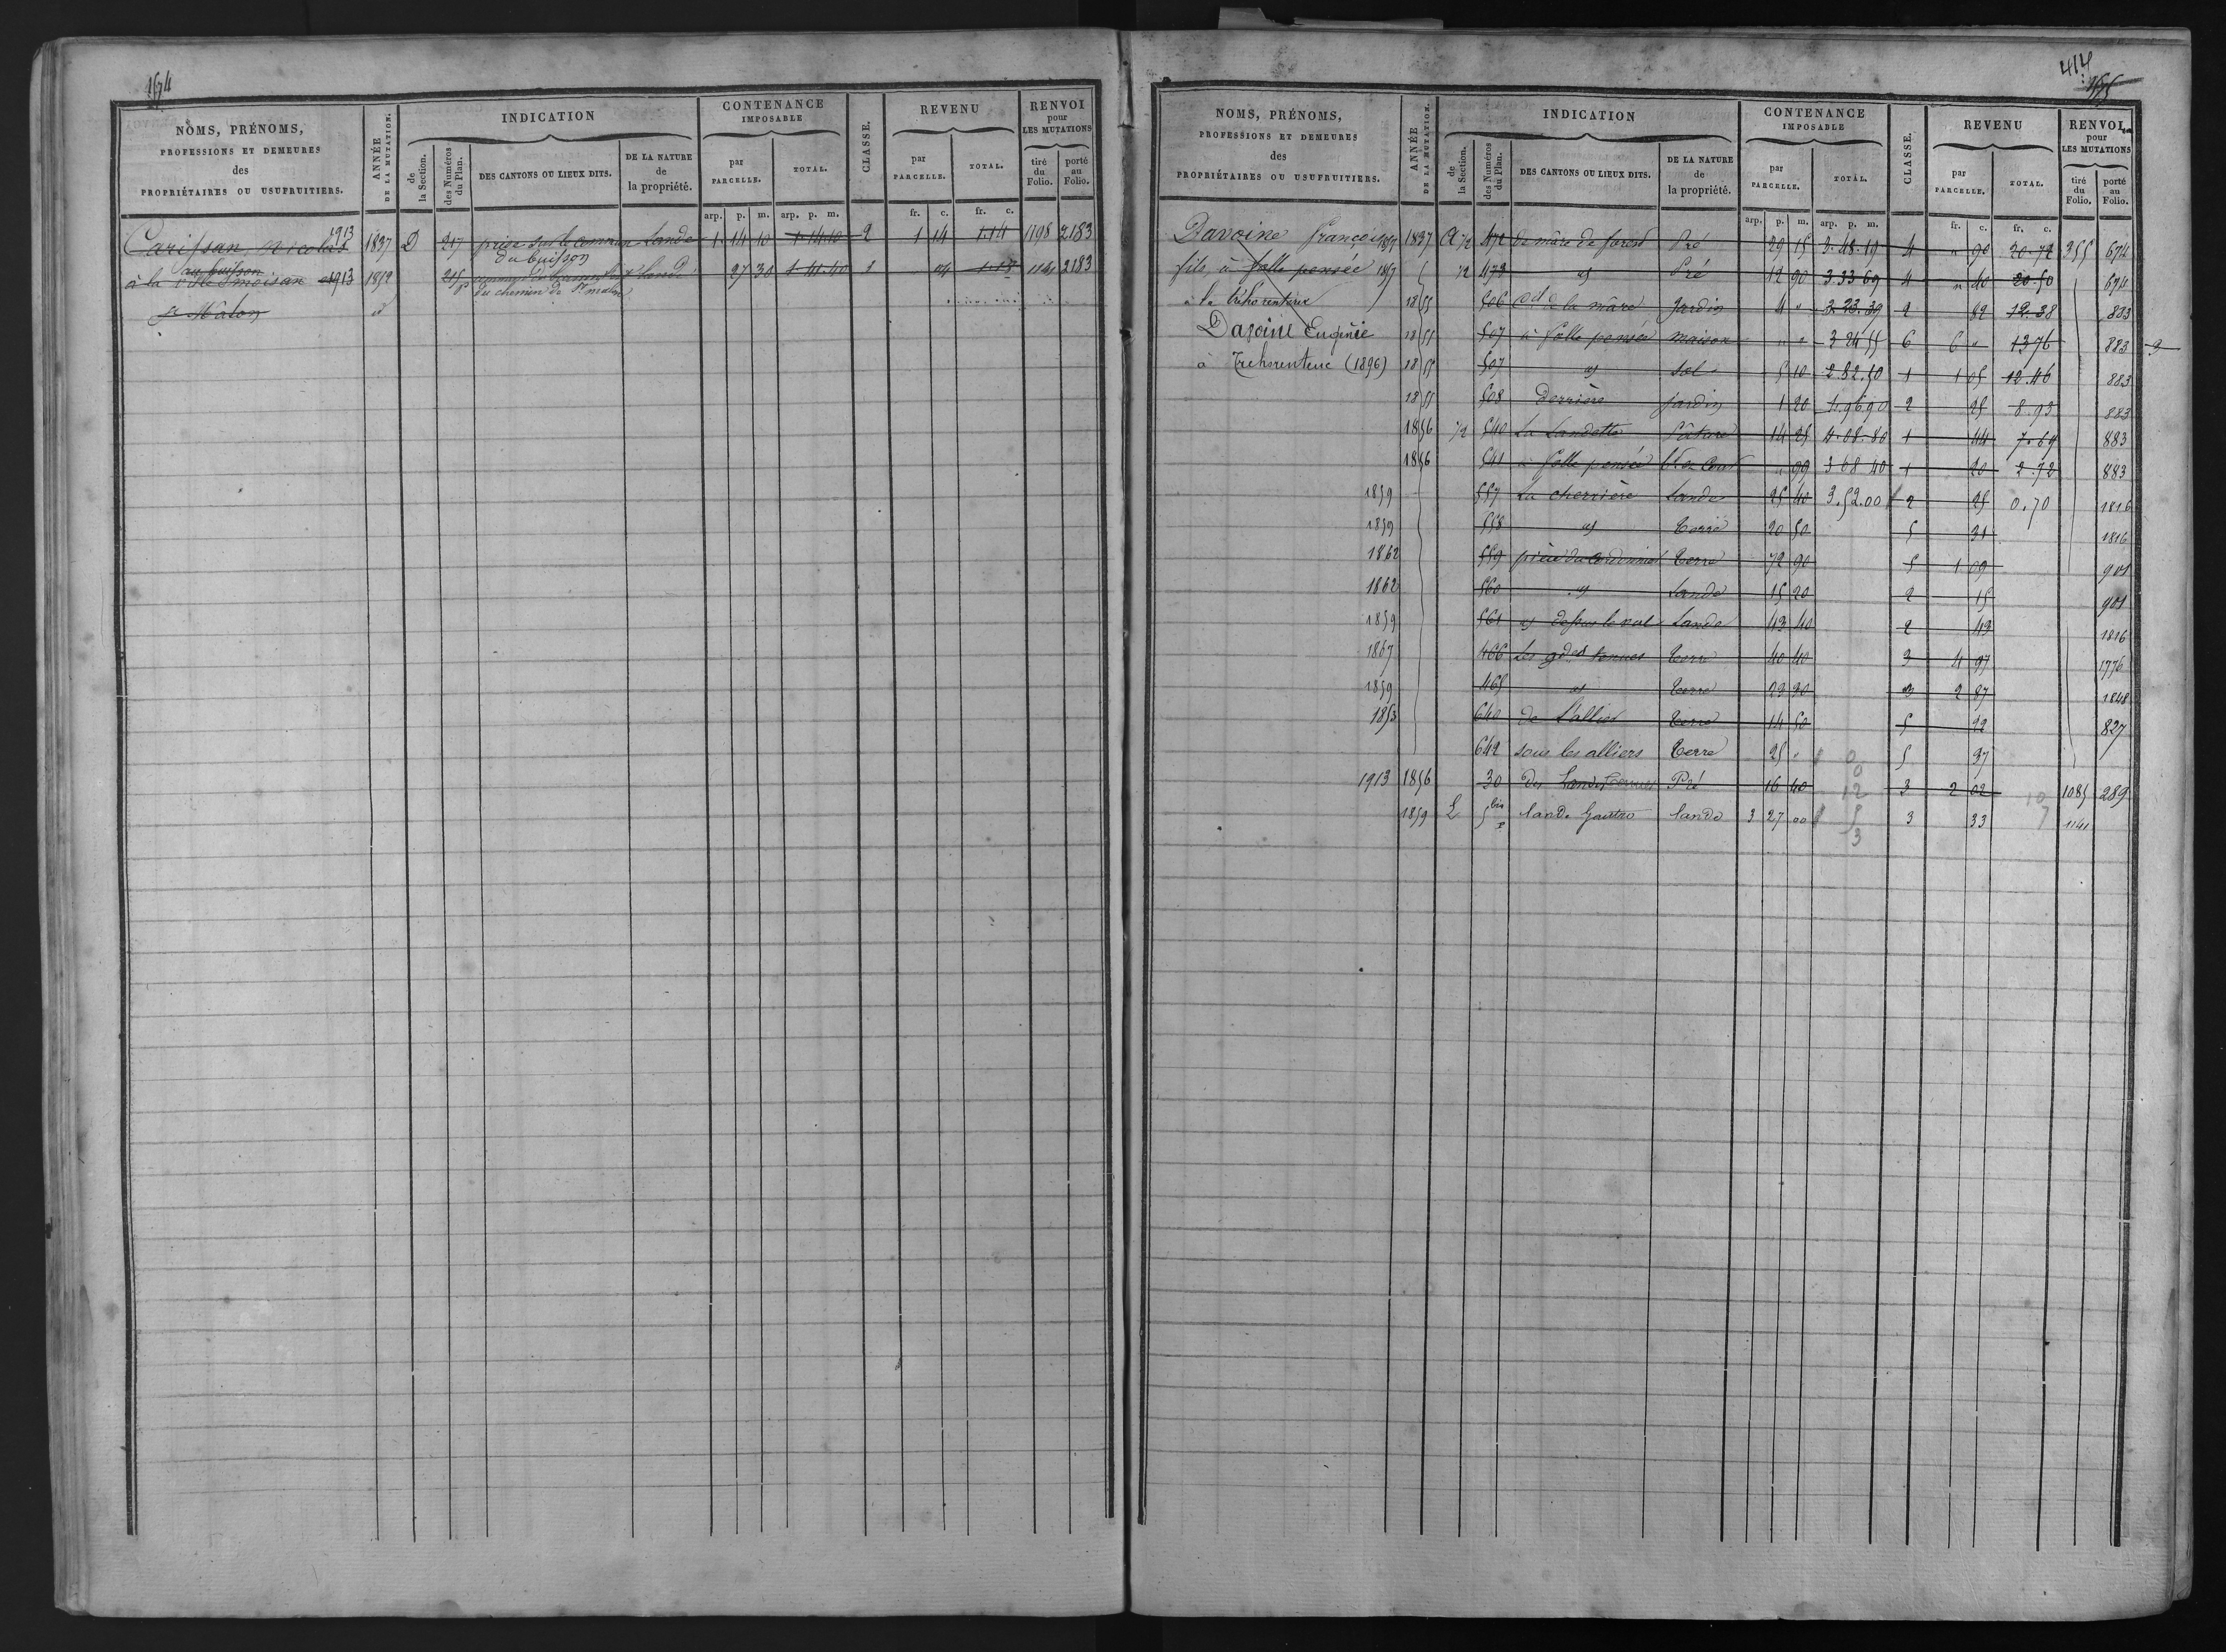 1574
NOMS, PRÉNOMS,
PROFESSIONS ET DEMEURES
des
PROPRIÉTAIRES OU USUFRUITIERS.
ANNÉE
DE LA MUTATION.
INDICATION
de
la Section.
des Numéros
du Plan.
DES CANTONS OU LIEUX DITS.
DE LA NATURE
de
la propriété.
CONTENANCE
IMPOSABLE
par
PARCELLE.
TOTAL.
arp. p. m. arp. p. m.
CLASSE.
REVENU
par
PARCELLE.
TOTAL.
fr. c. fr. c.
RENVOI
pour
LES MUTATIONS
tiré
du
Folio.
porté
au
Folio.
Carissan Nicolas 1913 1837 D 217 prise sur le commun Lande 1 14 10 1.14.10 2 1 14 1.14 1198 2183
du buisson
au buisson
à la 1913 1852 215 p 27 30 1.41.40 1 04 1.18 1141 2183
du chemin de St malon
St Malon
414
NOMS, PRÉNOMS,
PROFESSIONS ET DEMEURES
des
PROPRIÉTAIRES OU USUFRUITIERS.
ANNÉE
DE LA MUTATION.
INDICATION
de
la Section.
des Numéros
du Plan.
DES CANTONS OU LIEUX DITS.
DE LA NATURE
de
la propriété.
CONTENANCE
IMPOSABLE
par
PARCELLE.
TOTAL.
arp. p. m. arp. p. m.
CLASSE.
REVENU
par
PARCELLE.
TOTAL.
fr. c. fr. c.
RENVOI
pour
LES MUTATIONS
tiré
du
Folio.
porté
au
Folio.
Davoine François 1837 A 1/2 472 de mâre de forest Pré 29 15 3.48.19 4 " 90 20.72 355 674
fils, à folle pensée 1/2 473 id Pré 12 90 3.33.69 4 " 40 20.50 674
à la tréhorenteux 1855 506 Cd de la mâre Jardin 4 " 3.23.39 2 82 12.38 883
Davoine Eugénie 1855 507 à folle pensée maison " " 3.24.55 6 6 " 13.76 883
à Trehorenteuc (1896) 1855 507 id Sol 5 10 2.32.50 1 1 05 12.46 883
1855 508 Derrière jardin 1 20 1.96.90 2 25 8.93 883
1856 1/2 540 La Landette Pâture 14 25 4.08.80 1 44 7.69 883
1856 541 à folle pensée 99 3 68 40 1 20 2.72 883
1859 557 La cherrière Lande 25 40 3.52.00 2 25 0.70 1816
1859 558 id Terre 20 50 5 31 1816
1862 559 Terre 72 90 5 1 09 901
1862 560 id Lande 15 20 2 15 901
1859 561 id Lande 43 40 2 43 1816
1867 466 Les gdes tenues Terre 40 40 3 4 97 1776
1859 465 id Terre 23 30 3 2 87 1848
1853 640 de l'allier Terre 14 50 5 22 827
642 sous les alliers Terre 25 " 5 37
1913 1856 30 Pré 16 40 3 2 02 1085 289
1859 L 5 bis p lande Gautro lande 3 27 00 3 33 1141